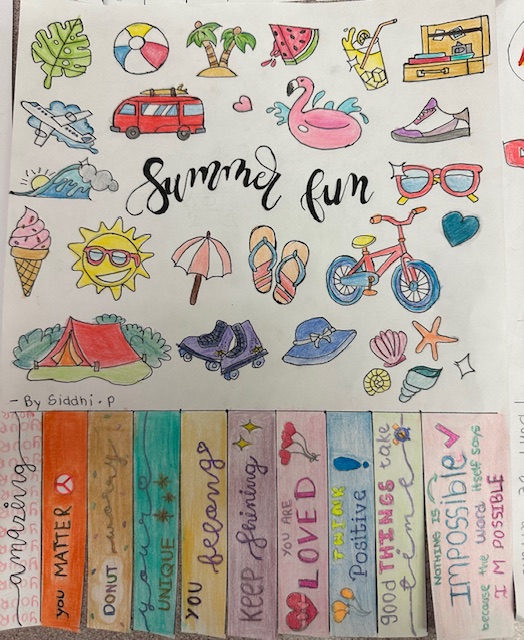 Summer fun
- By Siddhi . P
amazing
YOU MATTER
DONUT worry
your
UNIQUE
YOU belong
KEEP Shining
YOU ARE
LOVED
THINK
Positive
good THINGS take
time
NOTHING IS
IMPOSSIBLE
because the word itself says
I M POSSIBLE